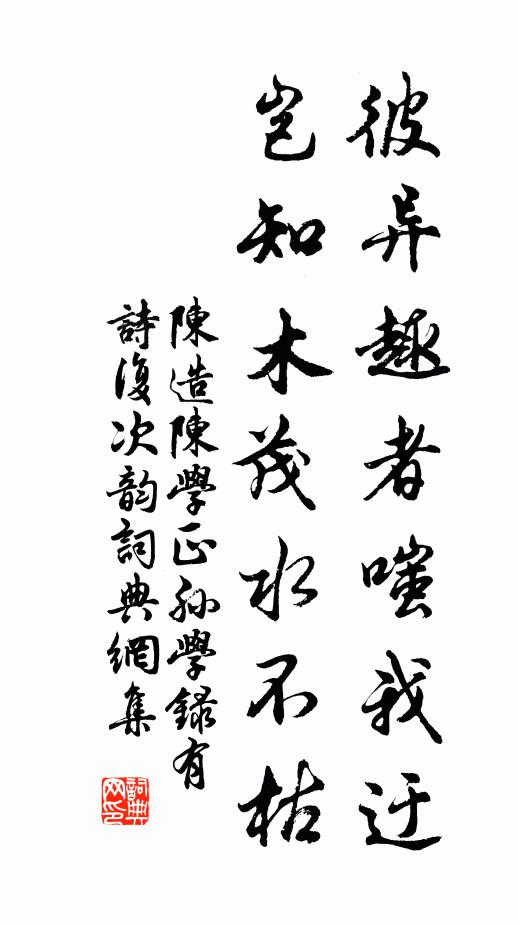 彼异趣者嗤我迂
岂知木茂水不枯
陳造陳學正孙學録有
詩復次韵詞典網集
詞典网印